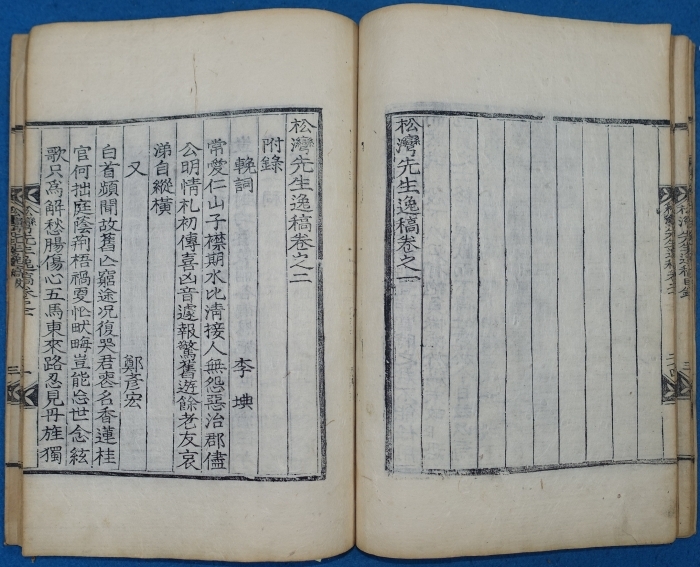 松灣先生逸稿卷之一
松灣先生逸稿卷之二
附錄
輓詞
李㙉
常愛仁山子襟期水比淸接人無怨惡治郡儘
公明情札初傳喜凶音遽報驚舊遊餘老友哀
涕自縱橫
又
鄭彦宏
白首頻聞故舊亾窮途况復哭君喪名香蓮桂
官何拙庭蔭荊梧禍更忙畎畮豈能忘世念絃
歌只爲解愁腸傷心五馬東來路忍見丹旌獨